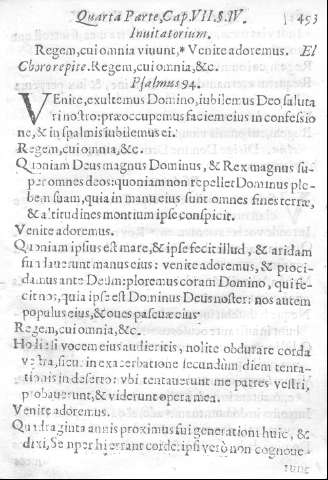 Quarta Parte, Cap. VII. §. IV. 453
Inuitatorium.
Regem, cui omnia viuunt, * Venite adoremus. El
Choro repite. Regem, cui omnia, &c.
Psalmus 94.
VEnite, exultemus Domino, iubilemus Deo saluta
ri nostro: præoccupemus faciem eius in confessio
ne, & in psalmis iubilemus ei.
Regem, cui omnia, &c.
Quoniam Deus magnus Dominus, & Rex magnus su-
per omnes deos: quoniam non repellet Dominus ple-
bem suam, quia in manu eius sunt omnes fines terræ,
& altitudines montium ipse conspicit.
Venite adoremus.
Quoniam ipsius est mare, & ipse fecit illud, & aridam
fundauerunt manus eius: venite adoremus, & proci-
damus ante Deum: ploremus coram Domino, qui fe-
cit nos, quia ipse est Dominus Deus noster: nos autem
populus eius, & oues pascuæ eius
Regem, cui omnia, &c.
Hodie si vocem eius audieritis, nolite obdurare corda
vestra, sicut in exacerbatione secundum diem tenta-
tionis in deserto: vbi tentauerunt me patres vestri,
probauerunt, & viderunt opera mea.
Venite adoremus.
Quadraginta annis proximus fui generationi huic, &
dixi, Semper hi errant corde: ipsi verò non cognoue-
runt